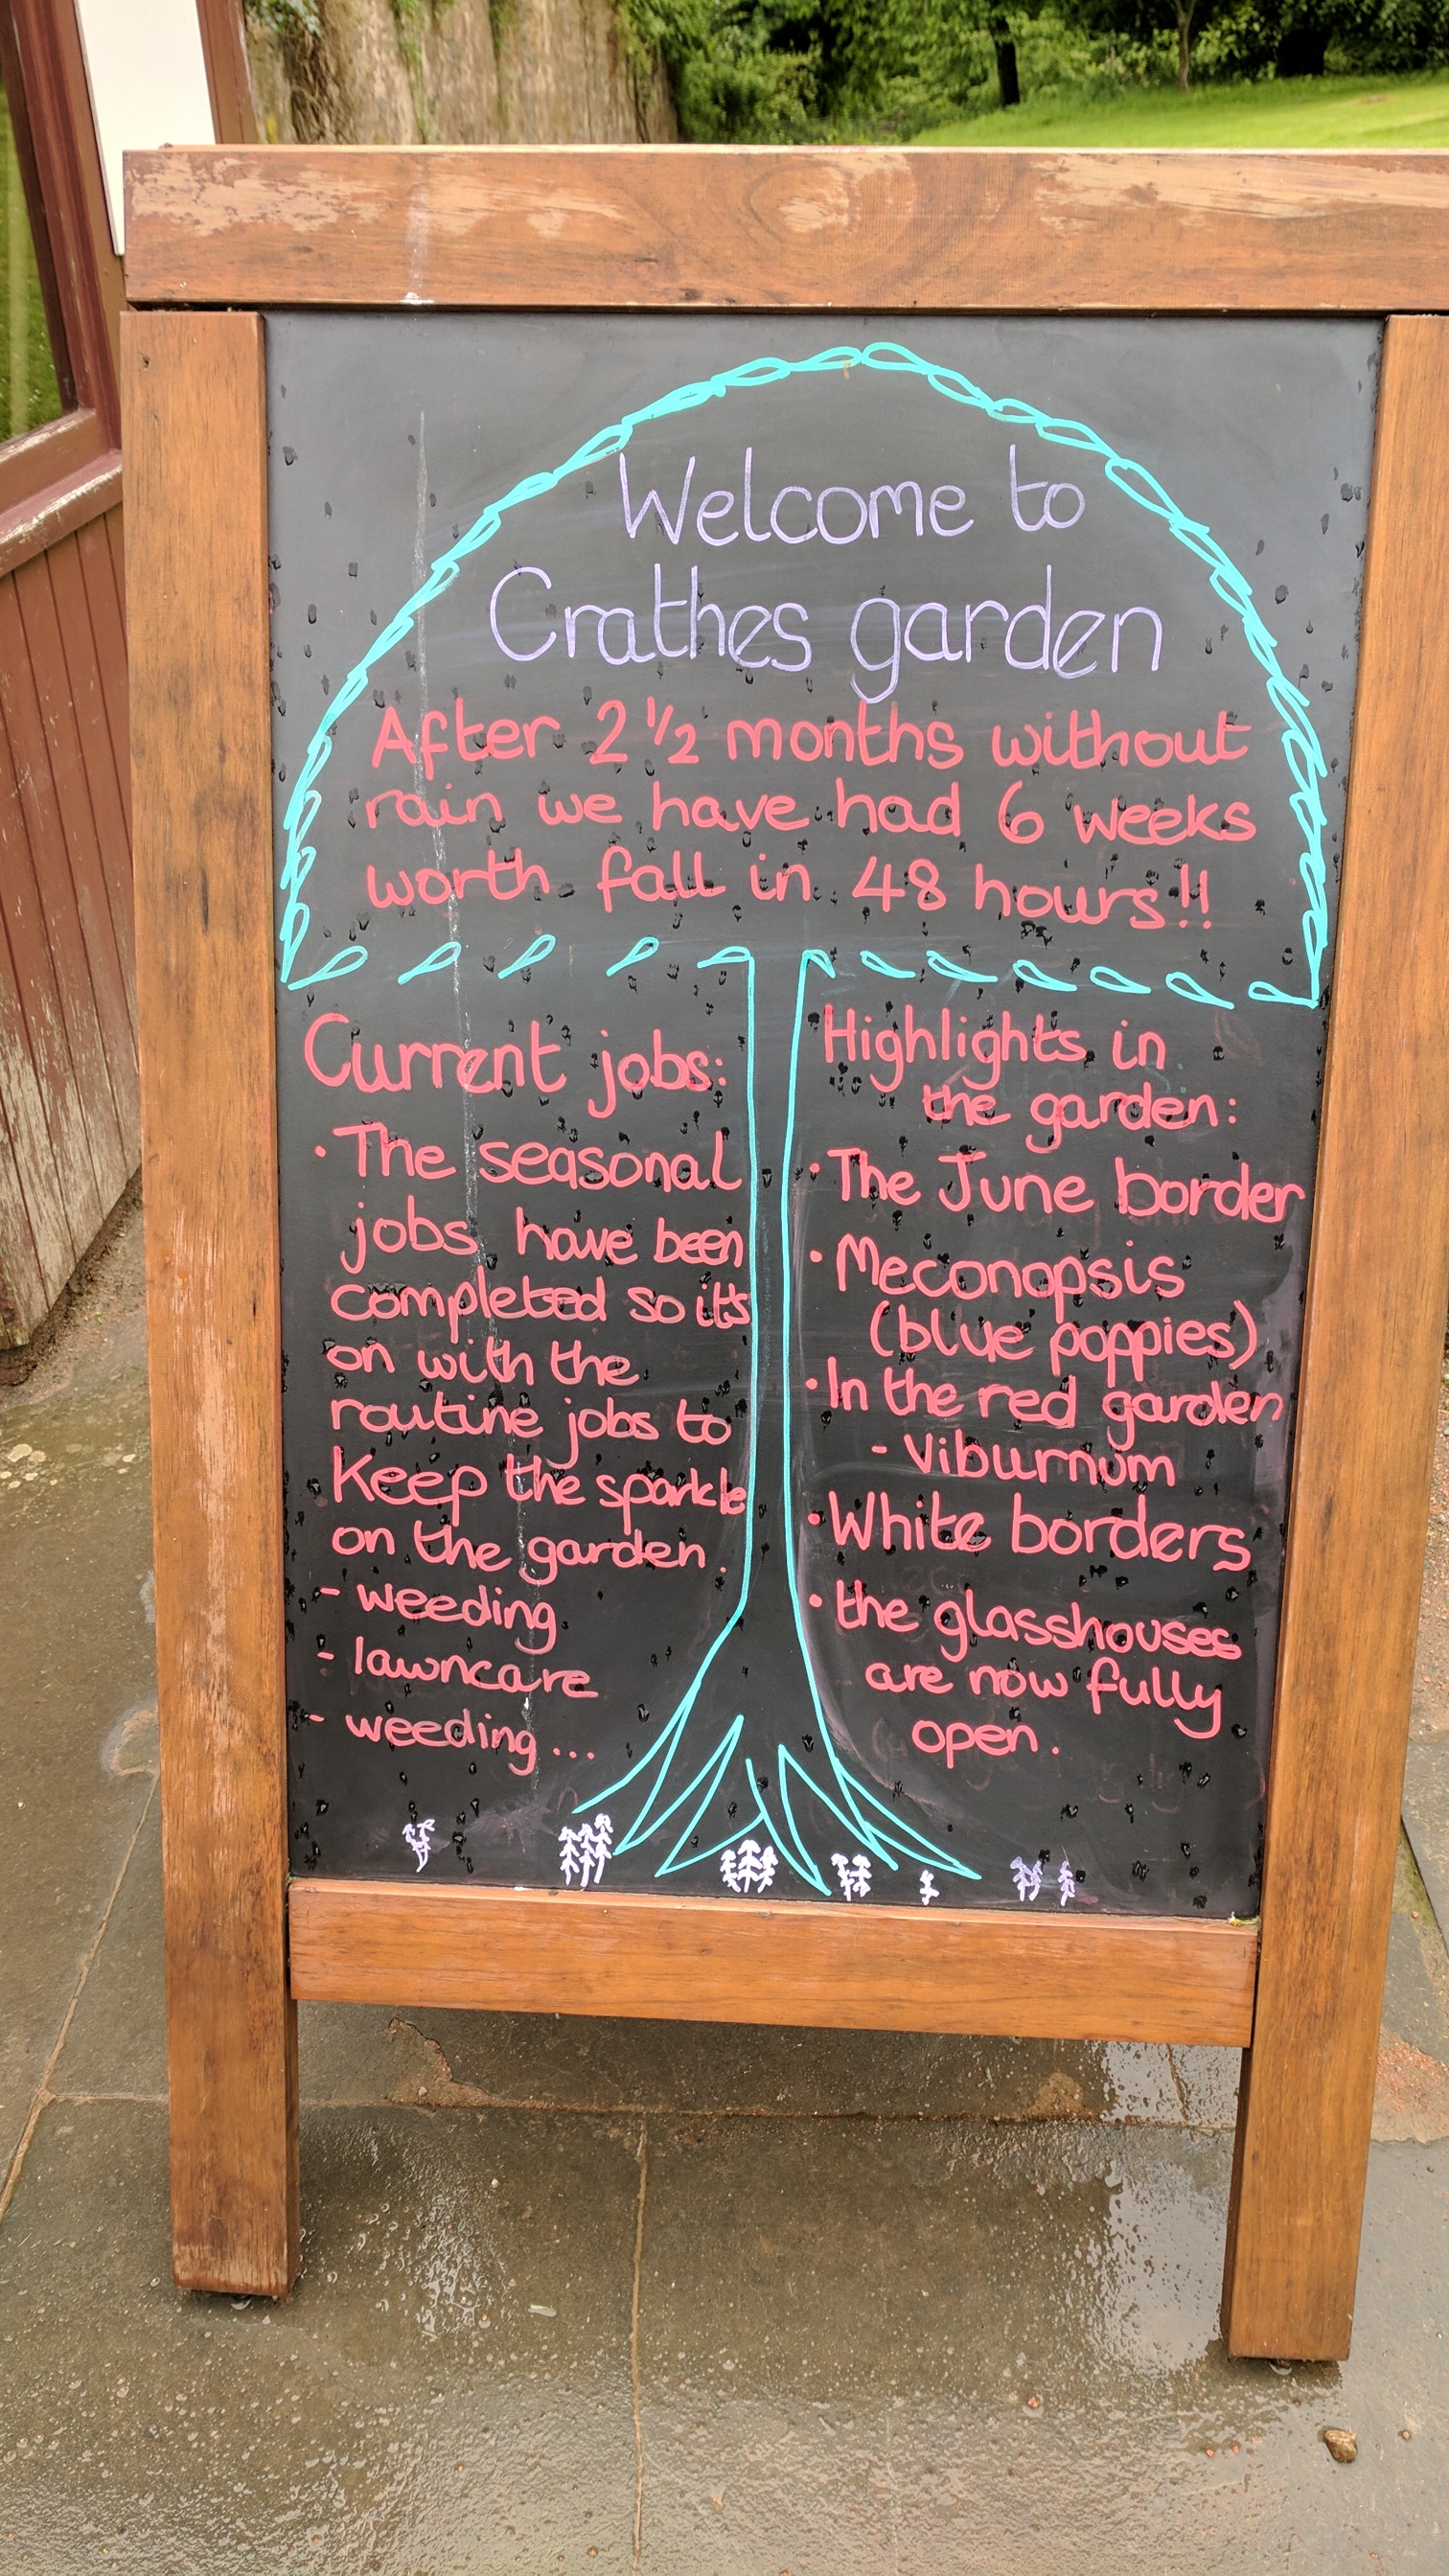 Welcome to
Crathes garden
After 2 1/2 months without
rain we have had 6 weeks
worth fall in 48 hours!!
Current jobs:
· The seasonal
jobs have been
completed so it's
on with the
routine jobs to
Keep the sparkle
on the garden.
- weeding
- lawncare
- weeding...
Highlights in
the garden:
· The June border
· Meconopsis
(blue poppies)
· In the red garden
- Viburnum
· White borders
· the glasshouses
are now fully
open.